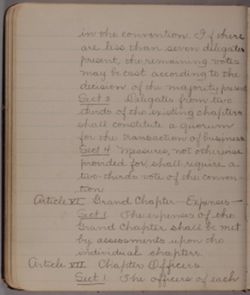 in the convention. If there
are less than seven delegates
present, the remaining votes
may be cast according to the
decision of the majority present
Sect 3 Delegates from two
thirds of the existing chapters
shall constitute a quorum
for the transaction of business
Sect 4 Measures, not otherwise
provided for, shall require a
two-thirds vote of the conven-
tion
Article VI Grand Chapter-Expenses-
Sect 1 The expenses of the
Grand Chapter shall be met
by assessments upon the
individual chapters.
Article VII. Chapter Officers
Sect 1 The officers of each